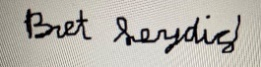 Bret Serydid